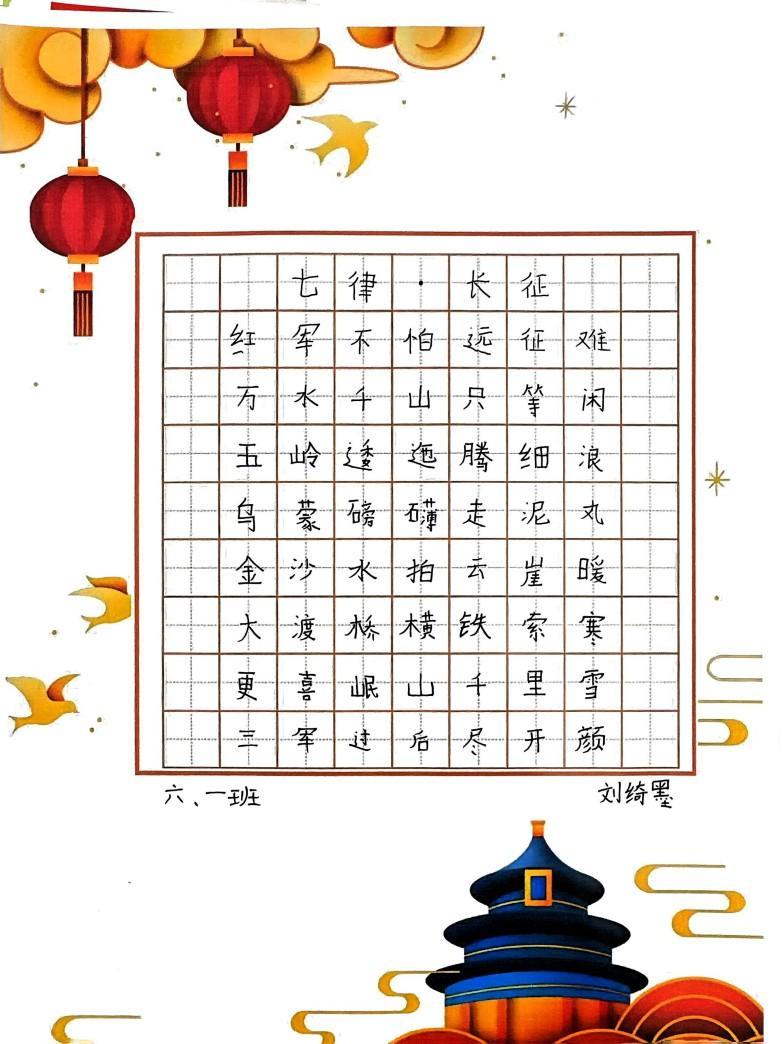 七律·长征
红军不怕远征难
万水千山只等闲
五岭逶迤腾细浪
乌蒙磅礴走泥丸
金沙水拍云崖暖
大渡桥横铁索寒
更喜岷山千里雪
三军过后尽开颜
六、一班 刘绮墨